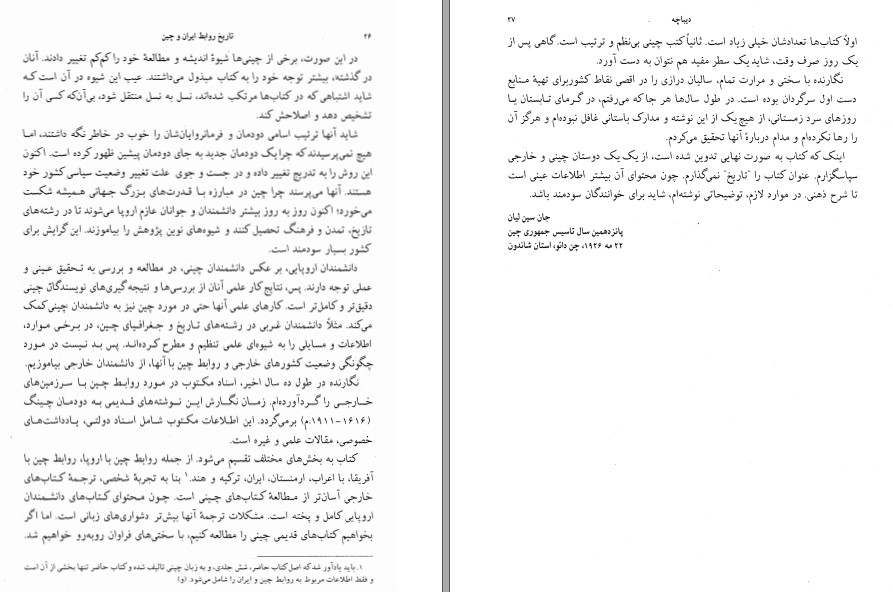 ۲۶ تاریخ روابط ایران و چین
در این صورت، برخی از چینی‌ها شیوهٔ اندیشه و مطالعهٔ خود را کم‌کم تغییر دادند. آنان
در گذشته، بیشتر توجه خود را به کتاب مبذول می‌داشتند. عیب این شیوه در آن است که
شاید اشتباهی که در کتاب‌ها مرتکب شده‌اند، نسل به نسل منتقل شود، بی‌آن‌که کسی آن را
تشخیص دهد و اصلاحش کند.
شاید آنها ترتیب اسامی دودمان و فرمانروایان‌شان را خوب در خاطر نگه داشتند، امـا
هیچ نمی‌پرسیدند که چرا یک دودمان جدید به جای دودمان پیشین ظهور کرده است. اکنون
این روش را به تدریج تغییر داده و در جست و جوی علت تغییر وضعیت سیاسی کشور خود
هستند. آنها می‌پرسند چرا چین در مبارزه با قـدرت‌های بـزرگ جـهانی هـمیشه شکست
می‌خورد؛ اکنون روز به روز بیشتر دانشمندان و جوانان عازم اروپا می‌شوند تا در رشته‌های
تاریخ، تمدن و فرهنگ تحصیل کنند و شیوه‌های نوین پژوهش را بیاموزند. این گرایش برای
کشور بسیار سودمند است.
دانشمندان اروپایی، بر عکس دانشمندان چینی، در مطالعه و بررسی به تـحقیق عـینی و
عملی توجه دارند. پس، نتایج کار علمی آنان از بررسی‌ها و نتیجه‌گیری‌های نویسندگان چینی
دقیق‌تر و کامل‌تر است. کارهای علمی آنها حتی در مورد چین نیز به دانشمندان چینی کمک
می‌کند. مثلاً دانشمندان غـربی در رشته‌های تـاریخ و جـغرافیای چـین، در بـرخی مـوارد،
اطلاعات و مسایلی را به شیوه‌ای علمی تنظیم و مطرح کـرده‌انـد. پس بـد نیست در مورد
چگونگی وضعیت کشورهای خارجی و روابط چین با آنها، از دانشمندان خارجی بیاموزیم.
نگارنده در طول ده سال اخیر، اسناد مکتوب در مورد روابـط چـین بـا سـرزمین‌های
خـارجـی را گـردآورده‌ام. زمـان نگـارش ایـن نـوشته‌های قـدیمی بـه دودمـان چـینگ
(۱۶۱۶–۱۹۱۱.م) برمی‌گردد. این اطـلاعات مکتوب شـامل اسناد دولتـی، یـادداشت‌های
خصوصی، مقالات علمی و غیره است.
کتاب به بخش‌های مختلف تقسیم می‌شود. از جمله روابط چین با اروپا، روابط چین با
آفریقا، با اعراب، ارمنستان، ایران، ترکیه و هند.۱ بنا به تجربهٔ شخصی، ترجمهٔ کتاب‌های
خارجی آسان‌تر از مـطالعهٔ کـتاب‌های چـینی است. چـون محتوای کتاب‌های دانشمندان
اروپایی کامل و پخته است. مشکلات ترجمهٔ آنها بیش‌تر دشواری‌های زبانی است. اما اگر
بخواهیم کتاب‌های قدیمی چینی را مطالعه کنیم، با سختی‌های فراوان روبه‌رو خواهیم شد.
۱. باید یادآور شد که اصل کتاب حاضر، شش جلدی، و به زبان چینی تالیف شده و کتاب حاضر تنها بخشی از آن است
و فقط اطلاعات مربوط به روابط چین و ایران را شامل می‌شود. (و)
دیباچه ۲۷
اولاً کتاب‌ها تعدادشان خیلی زیاد است. ثانیاً کتب چینی بی‌نظم و ترتیب است. گاهی پس از
یک روز صرف وقت، شاید یک سطر مفید هم نتوان به دست آورد.
نگارنده با سختی و مرارت تمام، سالیان درازی را در اقصی نقاط کشور برای تهیهٔ مـنابع
دست اول سرگردان بوده است. در طول سال‌ها هر جا که می‌رفتم، در گـرمای تـابستان یـا
روزهای سرد زمستانی، از هیچ یک از این نوشته و مدارک باستانی غافل نبوده‌ام و هرگز آن
را رها نکرده‌ام و مدام دربارهٔ آنها تحقیق می‌کردم.
اینک که کتاب به صورت نهایی تدوین شده است، از یک یک دوستان چینی و خارجی
سپاسگزارم. عنوان کتاب را "تاریخ" نمی‌گذارم. چون محتوای آن بیشتر اطلاعات عینی است
تا شرح ذهنی. در موارد لازم، توضیحاتی نوشته‌ام، شاید برای خوانندگان سودمند باشد.
جان سین لیان
پانزدهمین سال تاسیس جمهوری چین
۲۲ مه ۱۹۲۶، چن دائو، استان شاندون